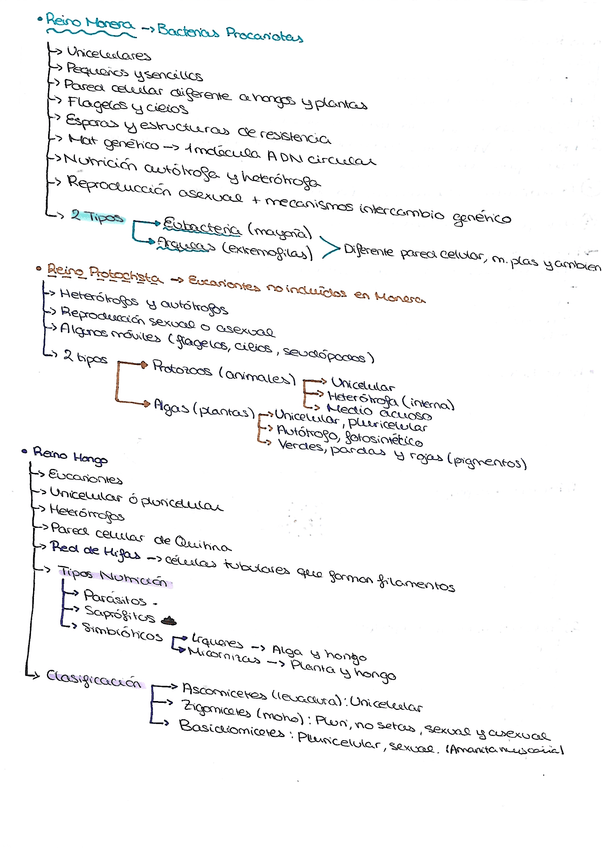 • Reino Monera -> Bacterias Procariotas
-> Unicelulares
-> Pequeños y sencillos
-> Pared celular diferente a hongos y plantas
-> Flagelos y cilios
-> Esporas y estructuras de resistencia
-> Mat genético -> 1 molécula ADN circular
-> Nutrición autótrofa y heterótrofa
-> Reproducción asexual + mecanismos intercambio genético
-> 2 Tipos -> Eubacteria (mayoría)
-> Arqueas (extremofilas) > Diferente pared celular, m. plas y ambien
• Reino Protoctista -> Eucariontes no incluidos en Monera
-> Heterótrofos y autótrofos
-> Reproducción sexual o asexual
-> Algunos móviles (flagelos, cilios, seudópodos)
-> 2 tipos -> Protozoos (animales) -> Unicelular
-> Heterótrofa (interna)
-> Medio acuoso
-> Algas (plantas) -> Unicelular, pluricelular
-> Autótrofo, fotosintético
-> Verdes, pardas y rojas (pigmentos)
• Reino Hongo
-> Eucariontes
-> Unicelular ó pluricelular
-> Heterótrofos
-> Pared celular de Quitina
-> Red de Hifas -> células tubulares que forman filamentos
-> Tipos Nutrición
-> Parásitos
-> Saprófitos
-> Simbióticos -> Líquenes -> Alga y hongo
-> Micorrizas -> Planta y hongo
-> Clasificación -> Ascomicetes (levadura): Unicelular
-> Zigomicetes (moho): Pluri, no setas, sexual y asexual
-> Basidiomicetes: Pluricelular, sexual. (Amanita muscaria)